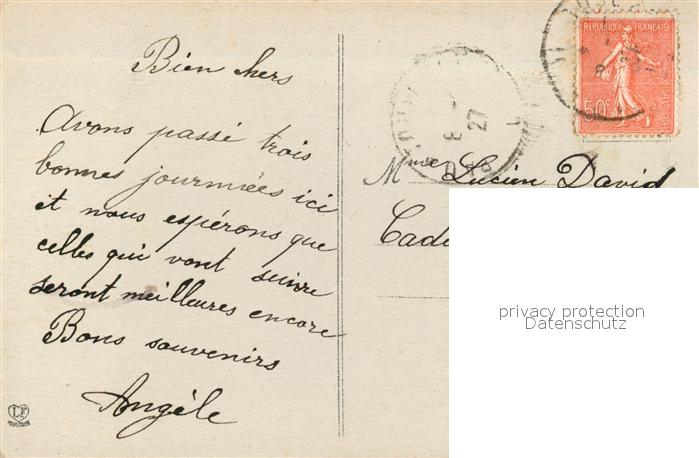 Bien chers
Avons passé trois
bonnes journnées ici
et nous espérons que
celles qui vont suivre
seront meilleures encore
Bons souvenirs
Angèle
LF
REPUBLIQUE FRANÇAISE
50c
POSTES
8
27
Mme Lucien David
Cade
privacy protection
Datenschutz